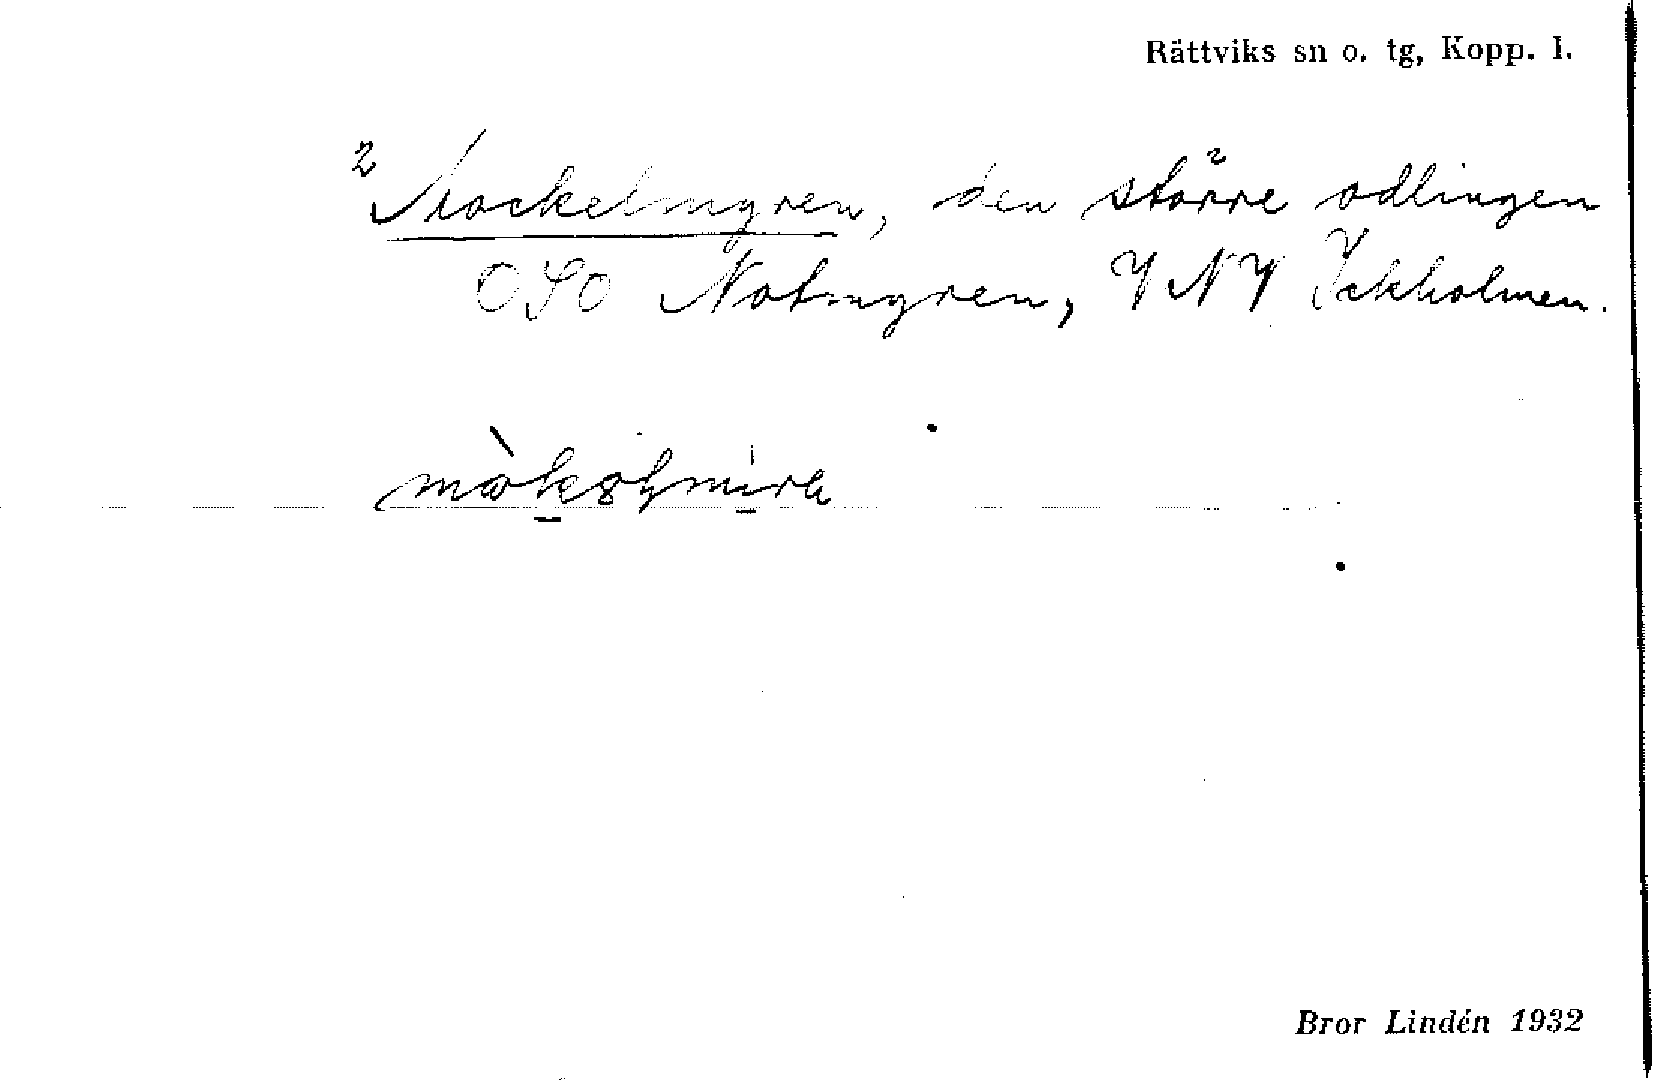 Rättviks sn o. tg, Kopp. l.
2 Mockelmyren, den större odlingen
OSO Notmyren, VNV Ickholmen.
Bror Lindén 1932